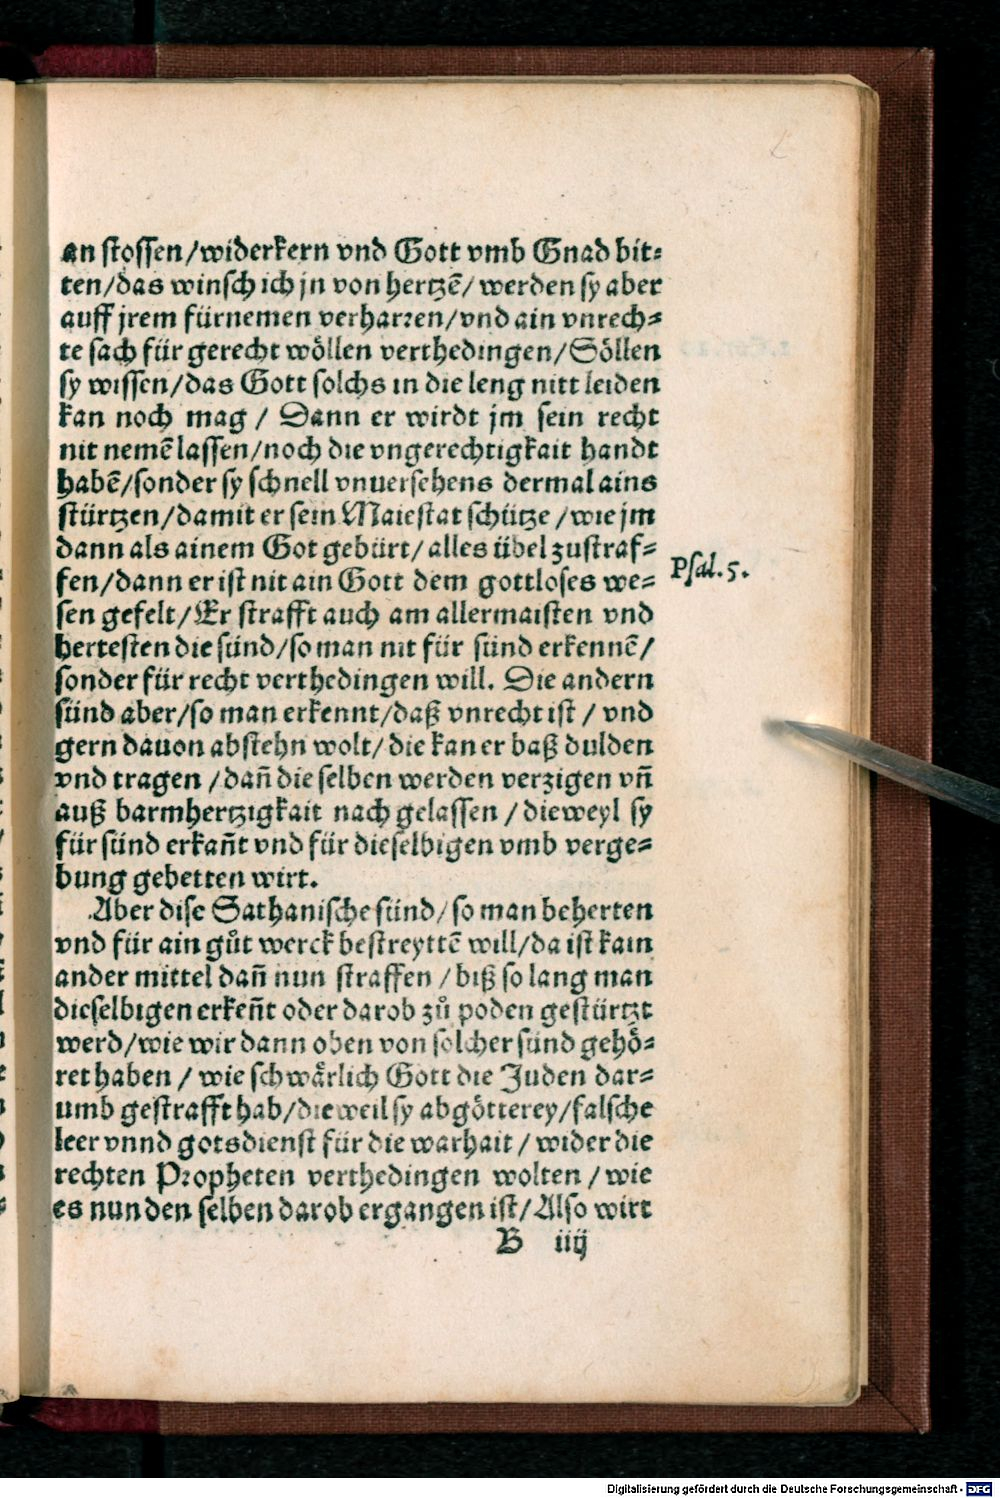 an stossen/widerkern vnd Gott vmb Gnad bit-
ten/das winsch ich jn von hertzē/werden sy aber
auff jrem fürnemen verharren/vnd ain vnrech-
te sach für gerecht wöllen verthedingen/Söllen
sy wissen/das Gott solchs in die leng nitt leiden
kan noch mag / Dann er wirdt jm sein recht
nit nemē lassen/noch die vngerechtigkait handt
habē/sonder sy schnell vnuersehens dermal ains
stürtzen/damit er sein Maiestat schütze/wie jm
dann als ainem Got gebürt/alles übel zustraf-
fen/dann er ist nit ain Gott dem gottloses we-
sen gefelt/Er strafft auch am allermaisten vnd
hertesten die sünd/so man nit für sünd erkennē/
sonder für recht verthedingen will. Die andern
sünd aber/so man erkennt/daß vnrecht ist / vnd
gern dauon abstehn wolt/die kan er baß dulden
vnd tragen /dañ die selben werden verzigen vñ
auß barmhertzigkait nach gelassen / dieweyl sy
für sünd erkañt vnd für dieselbigen vmb verge-
bung gebetten wirt.
Aber dise Sathanische sünd/so man beherten
vnd für ain gůt werck bestreyttē will/da ist kain
ander mittel dañ nun straffen /biß so lang man
dieselbigen erkeñt oder darob zů poden gestürtzt
werd/wie wir dann oben von solcher sünd gehö-
ret haben / wie schwärlich Gott die Juden dar-
umb gestrafft hab/die weil sy abgötterey/falsche
leer vnnd gotsdienst für die warhait / wider die
rechten Propheten verthedingen wolten / wie
es nun den selben darob ergangen ist/Also wirt
B iiij
Psal. 5.
Digitalisierung gefördert durch die Deutsche Forschungsgemeinschaft - DFG